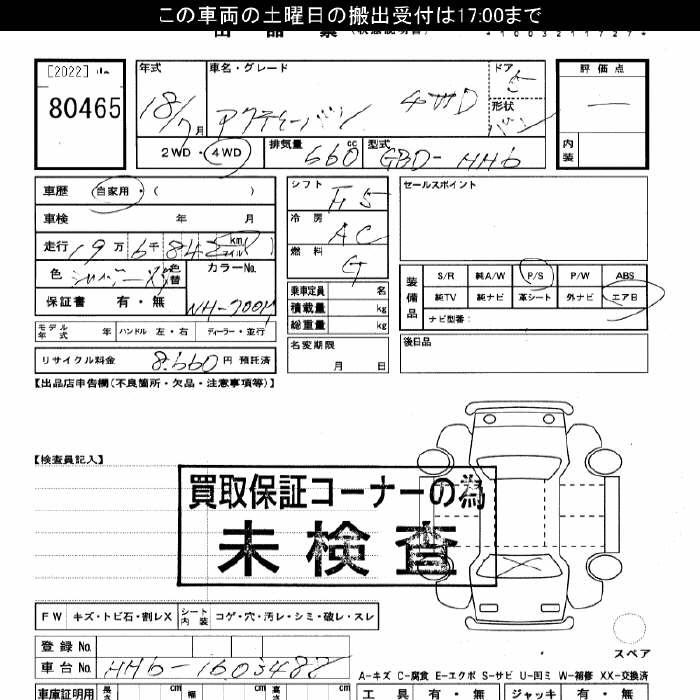 この車両の土曜日の搬出受付は17:00まで
[2022]
80465
年式 車名・グレード ドア 5
18/7月 アクティーバン 4WD 形状 バン
2WD・4WD 排気量 660cc 型式 GBD-HH6
評価点
内装
車歴 自家用・( )
車検 年 月
走行 19万6千842 km マイル
色 シルバー 色替 カラーNo.
保証書 有・無 NH-700M
モデル年式 年 ハンドル 左・右 ディーラー・並行
リサイクル料金 8.660円 預託済
シフト F5
冷房 AC
燃料 G
乗車定員 名
積載量 kg
総重量 kg
名変期限
月 日
セールスポイント
装備品 S/R 純A/W P/S P/W ABS
純TV 純ナビ 革シート 外ナビ エアB
ナビ型番:
後日品
【出品店申告欄(不良箇所・欠品・注意事項等)】
【検査員記入】
買取保証コーナーの為
未検査
FW キズ・トビ石・割レX シート内装 コゲ・穴・汚レ・シミ・破レ・スレ
スペア
登録No.
車台No. HH6-1603487
A-キズ C-腐食 E-エクボ S-サビ U-凹ミ W-補修 XX-交換済
車庫証明用 長さ cm 幅 cm 高さ cm
工具 有・無 ジャッキ 有・無